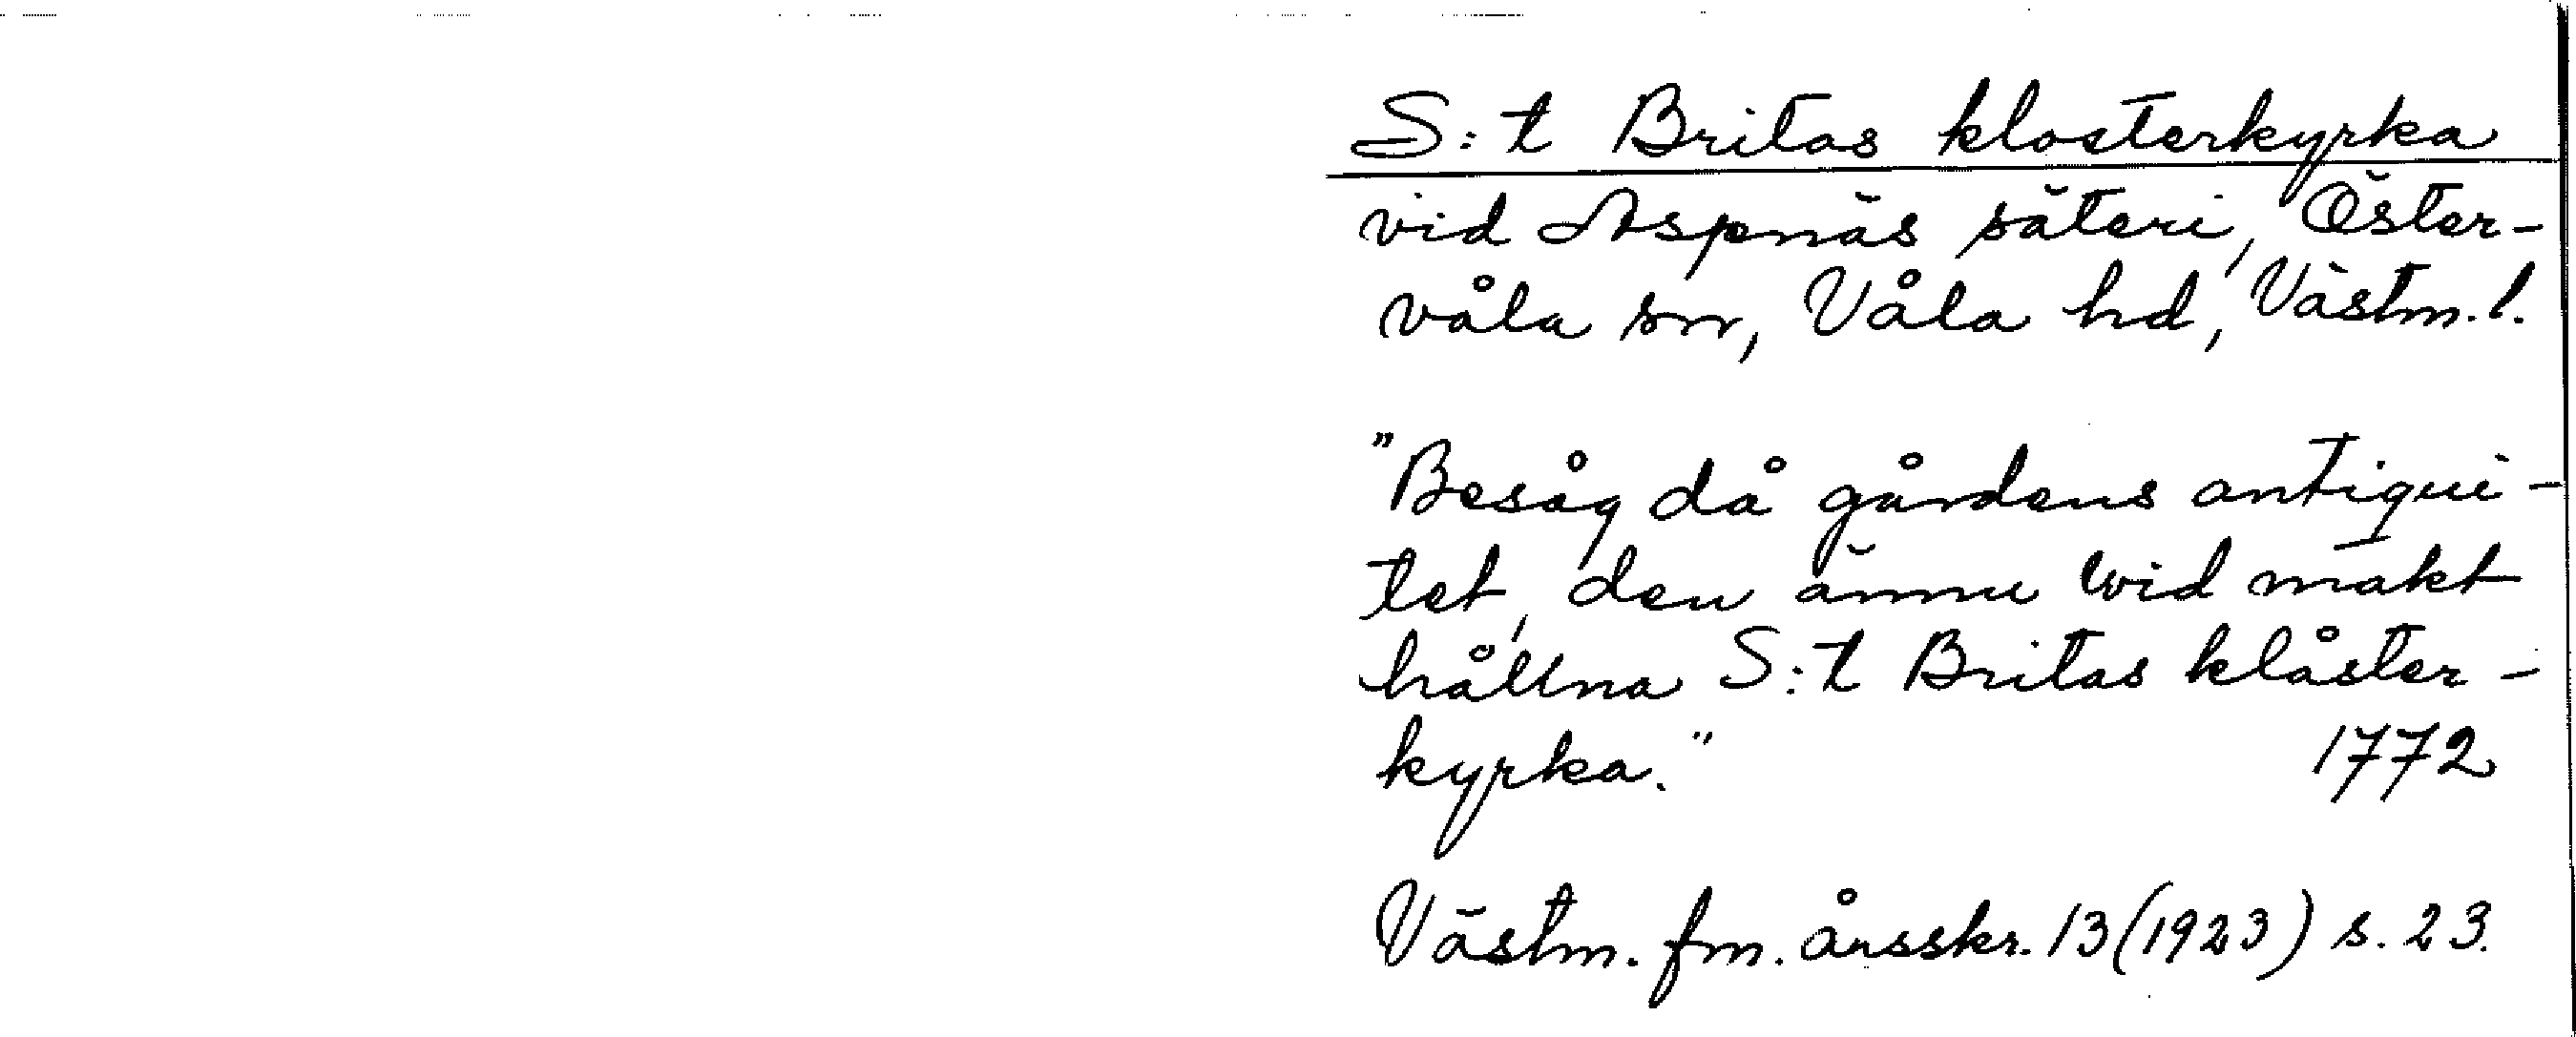 S:t Britas klosterkyrka
vid Aspnäs säteri, Öster-
våla sn, Våla hd, Västm. l.
"Besåg då gårdens antiqui-
tet, den ännu wid makt
hållna S:t Britas klåster-
kyrka." 1772
Västm. fm. årsskr. 13 (1923) s. 23.